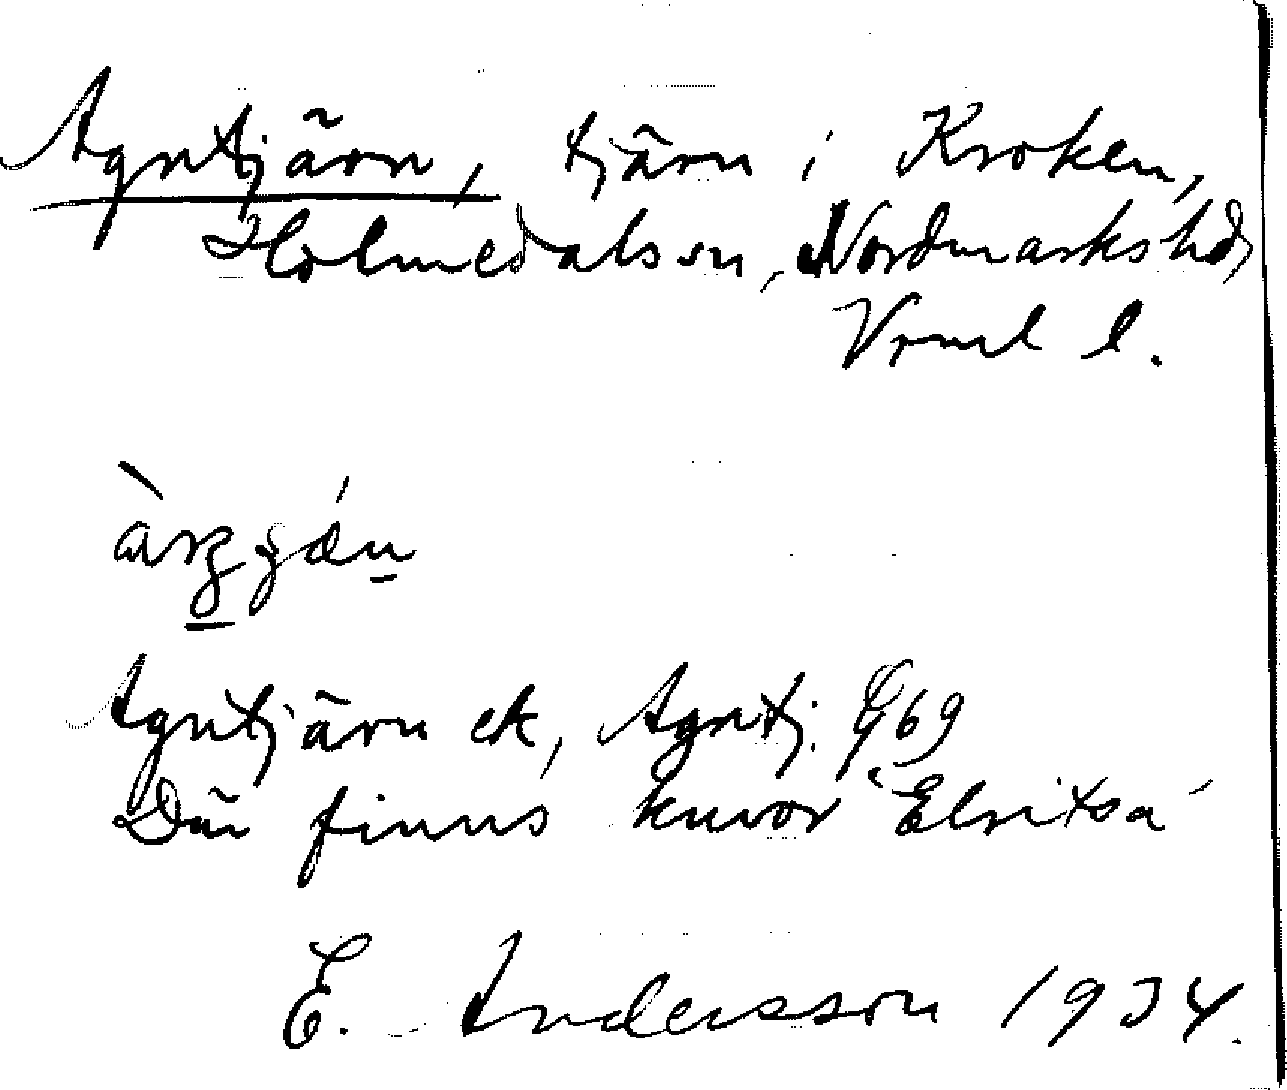 Agntjärn, tjärn i Kroken,
Holmedals sn, Nordmarks hd,
Vrml l.
Agntjärn ek, Agntj. G69
Där finns kuvor "Elritsa"
E. Andersson 1934.